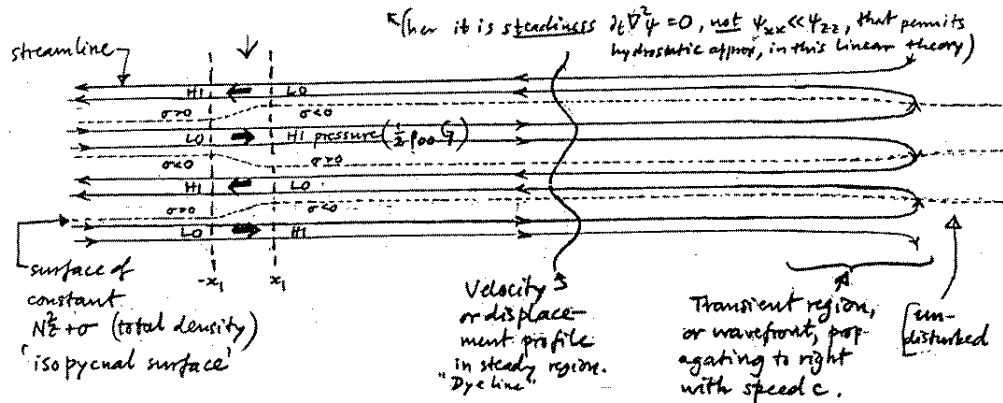 (her it is steadiness ∂t∇²ψ = 0, not ψxx ≪ ψzz, that permits
hydrostatic approx, in this linear theory)
streamline
HI LO
σ>0 σ<0
LO HI pressure (½ρ00 G)
σ<0 σ>0
HI LO
σ>0 σ<0
LO HI
-x1 x1
surface of
constant
N²z + σ (total density)
'isopycnal surface'
Velocity
or displace-
ment profile
in steady region.
"Dye line"
Transient region,
or wavefront, prop-
agating to right
with speed c.
un-
disturbed